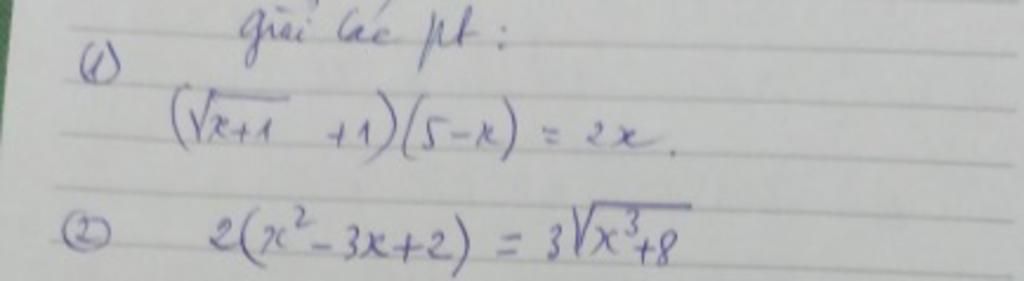 giải các pt :
(1)
(√x+1 +1)(5-x) = 2x.
(2) 2(x²-3x+2) = 3√x³+8